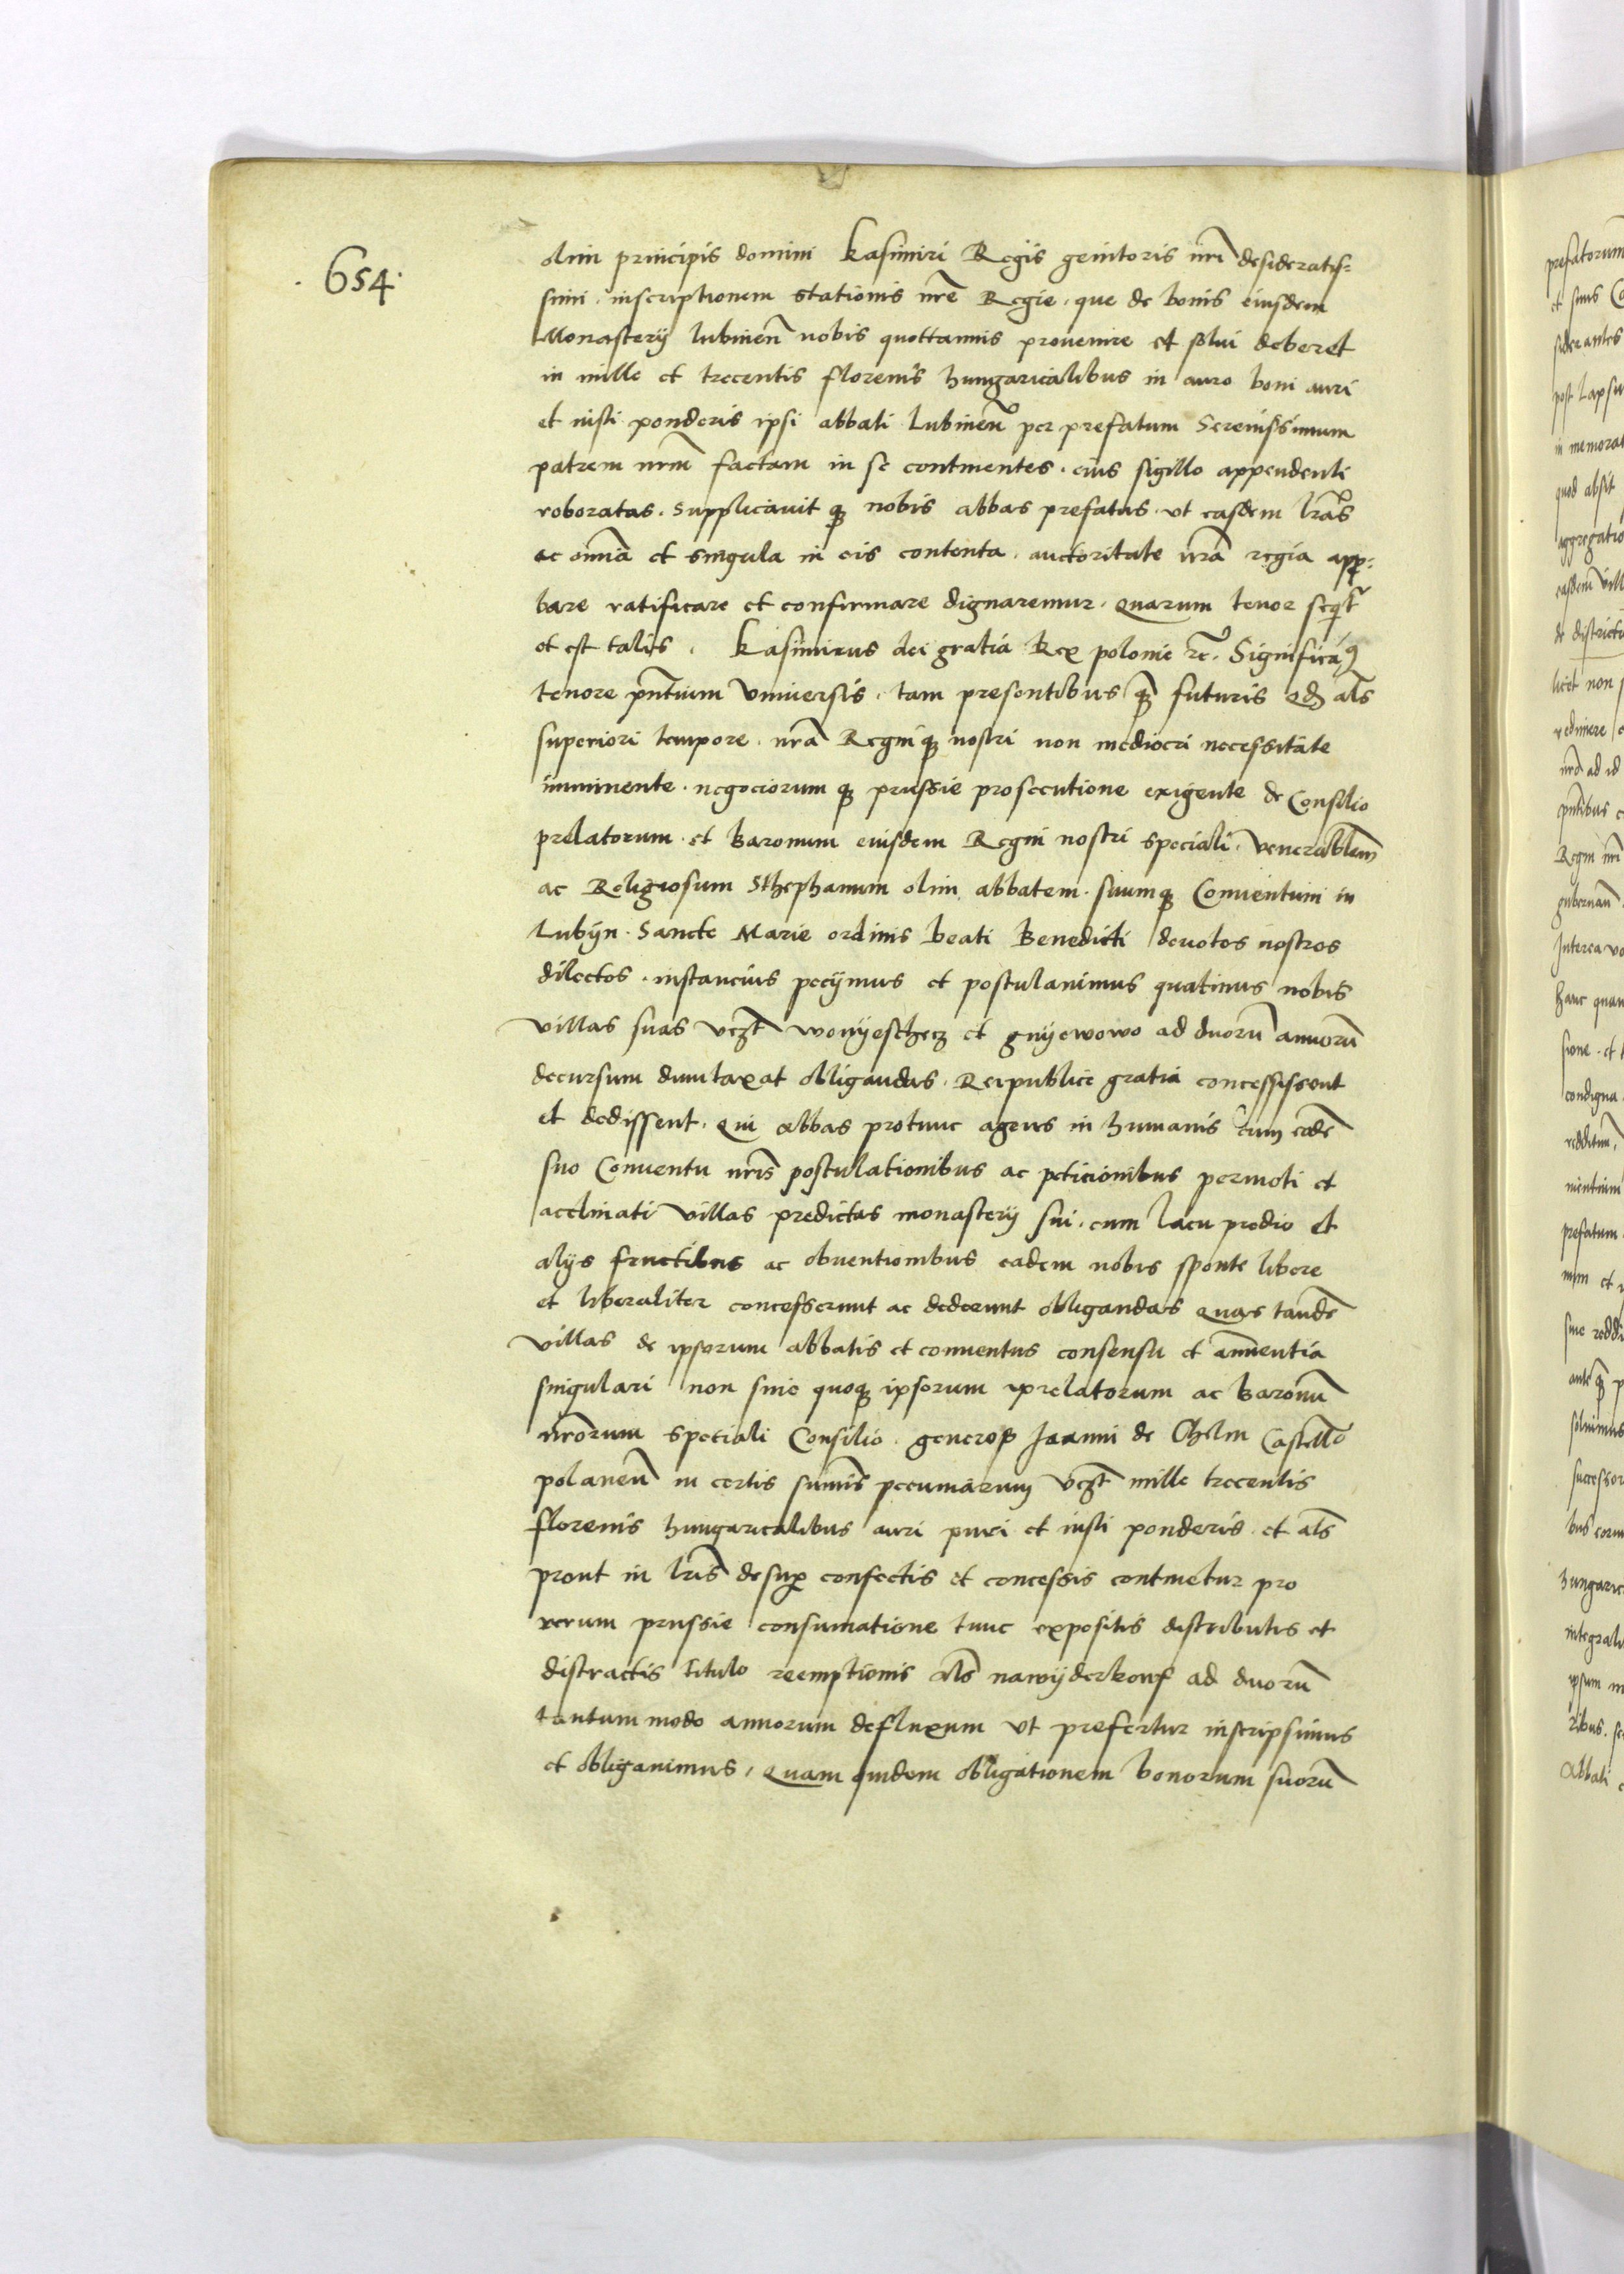 . 654 .
olim principis domini Kasimiri Regis genitoris nr̃i desideratis-
simi . inscriptionem stationis nr̃e Regie . que de bonis eiusdem
Monasterij lubineñ nobis quottannis prouenire et solui deberet
in mille et trecentis florenis hungaricalibus in auro boni auri
et iusti ponderis ipsi abbati Lubineñ per prefatum Serenissimum
patrem nr̃m factam in se continentes . eius sigillo appendenti
roboratas . Supplicauit qꝫ nobis abbas prefatus . vt easdem lr̃as
ac om̃ia et singula in eis contenta . auctoritate nr̃a regia appꝛo-
bare ratificare et confirmare dignaremur . Quarum tenor seqꝛ̃
et est talis . Kasimirus dei gratia Rex polonie ꝛc̃ . Significamꝰ
tenore pñtium Vniuersis . tam presentibus qꝫ̃ futuris qđ al̃s
superiori tempore . nr̃a Regniqꝫ nostri non mediocri necessitate
imminente . negociorum qꝫ prussie prosecutione exigente de Consilio
prelatorum . et Baronum eiusdem Regni nostri speciali . venerabilem
ac Religiosum Sthephanum olim abbatem . suumqꝫ Conuentum in
Lubijn . Sancte Marie ordinis beati Benedicti deuotos nostros
dilectos . instancius pecijmus et postulauimus quatinus nobis
villas suas vcꝫt̃ wonijeschecz et gnijewowo ad duorũ annorũ
decursum dumtaxat obligandas . Reipublice gratia concessissent
et dedissent . Qui abbas protunc agens in humanis cum eodẽ
suo Conuentu nr̃is postulationibus ac peticionibus permoti et
acclinati villas predictas monasterij sui . cum lacu predio et
alijs fructibus ac obuentionibus eadem nobis sponte libere
et liberaliter concesserunt ac dederunt obligandas Quas tandẽ
villas de ipsorum abbatis et conuentus consensu et annuentia
singulari non sine quoqꝫ ipsorum prelatorum ac Baronũ
nr̃orum speciali Consilio . generoso Joanni de Chelm Castell̃o
polaneñ in certis sum̃is pecuniarum vcꝫt̃ mille trecentis
florenis hungaricalibus auri puri et iusti ponderis . et al̃s
prout in lr̃is desuꝑ confectis et concessis continetur pro
rerum prussie consumatione tunc expositis distributis et
distractis titulo reemptionis al̃s nawijderkowf ad duorũ
tantummodo annorum defluxum vt prefertur inscripsimus
et obligauimus . Quam quidem obligationem bonorum suorũ
prefatorum
et suis
siderantes
post lapsu
in memorat
quod absit
aggregatio
easdem vill
de districtu
licet non
redimere
nr̃a ad id
pñtibus
Regni nr̃i
gubernañ
Interea
hanc quam
sione . et
condigna
redditum
prefatum
sine reddi
ante qꝫ
soluimus
successor
bus eorum
hungaric
integrali
ipsum
ribus .
Abbati